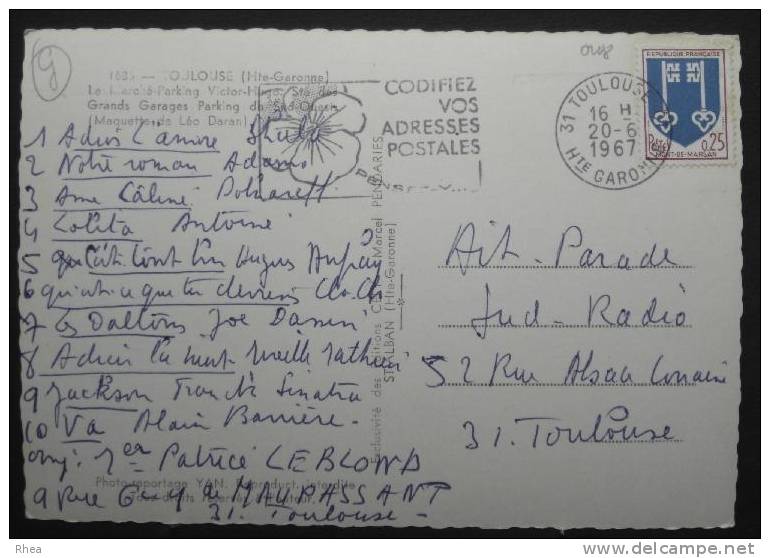 9
1635 — TOULOUSE (Hte-Garonne)
Le Marché-Parking Victor-Hugo. Sté des
Grands Garages Parking du Sud-Ouest
(Maquette de Léo Daran)
1 Adios l'amore Sheila
2 Notre roman Adamo
3 Ame Câline Polnareff
4 Lolita Antoine
5 Hugues Aufray
6 qu'est ce que tu deviens Clo-Clo
7 les Daltons Joe Dassin
8 Mireille Mathieu
9 Jackson Franck Sinatra
10 Va Alain Barrière.
1er Patrice LEBLOND
9 Rue Guy de MAUPASSANT
31. Toulouse -
Photo-reportage YAN. Reproduct. interdite
Tous droits réservés
Exclusivité des Editions Marcel PENDARIES
ST-ALBAN (Hte-Garonne)
CODIFIEZ
VOS
ADRESSES
POSTALES
31 TOULOUSE
16 H
20-6
1967
HTE GARONNE
REPUBLIQUE FRANÇAISE
Postes
0,25
MONT-DE-MARSAN
Hit-Parade
Sud-Radio
52 Rue Alsace Lorraine
31. Toulouse
Rhea
delcampe.net